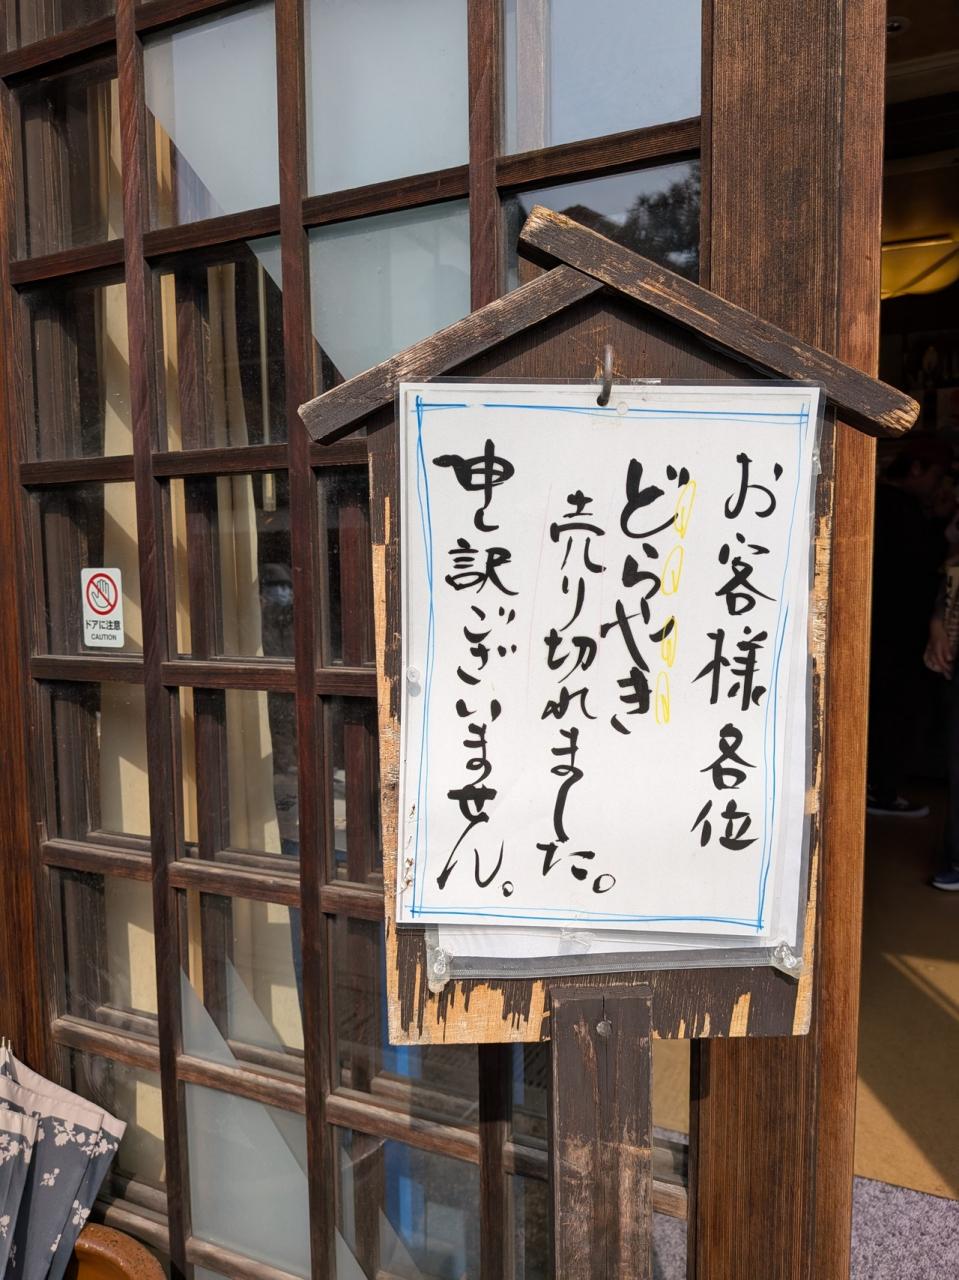 お客様各位
どらやき
売り切れました。
申し訳ございません。
ドアに注意
CAUTION